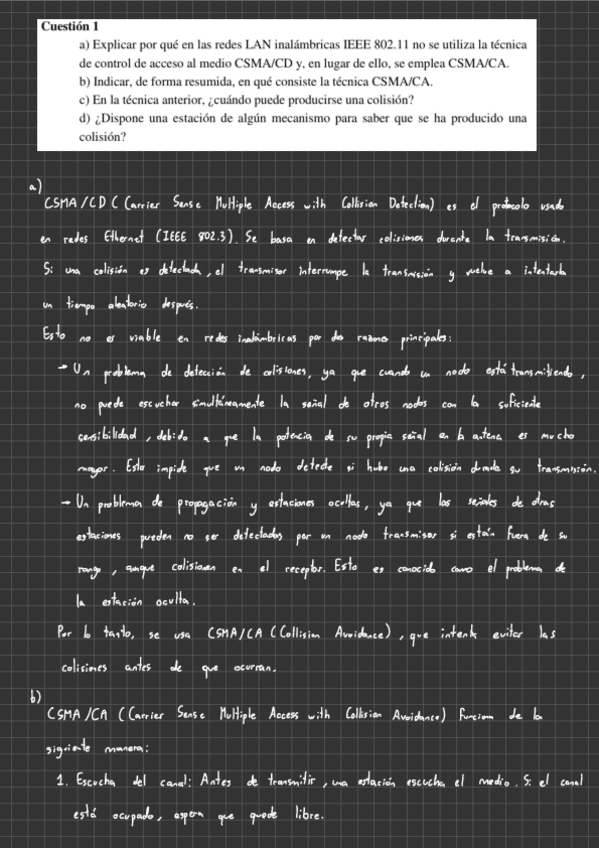 Cuestión 1
a) Explicar por qué en las redes LAN inalámbricas IEEE 802.11 no se utiliza la técnica
de control de acceso al medio CSMA/CD y, en lugar de ello, se emplea CSMA/CA.
b) Indicar, de forma resumida, en qué consiste la técnica CSMA/CA.
c) En la técnica anterior, ¿cuándo puede producirse una colisión?
d) ¿Dispone una estación de algún mecanismo para saber que se ha producido una
colisión?
a)
CSMA/CD (Carrier Sense Multiple Access with Collision Detection) es el protocolo usado
en redes Ethernet (IEEE 802.3). Se basa en detectar colisiones durante la transmisión.
Si una colisión es detectada, el transmisor interrumpe la transmisión y vuelve a intentarla
un tiempo aleatorio después.
Esto no es viable en redes inalámbricas por dos razones principales:
→ Un problema de detección de colisiones, ya que cuando un nodo está transmitiendo,
no puede escuchar simultáneamente la señal de otros nodos con la suficiente
sensibilidad, debido a que la potencia de su propia señal en la antena es mucho
mayor. Esto impide que un nodo detecte si hubo una colisión durante su transmisión.
→ Un problema de propagación y estaciones ocultas, ya que las señales de otras
estaciones pueden no ser detectadas por un nodo transmisor si están fuera de su
rango, aunque colisionen en el receptor. Esto es conocido como el problema de
la estación oculta.
Por lo tanto, se usa CSMA/CA (Collision Avoidance), que intenta evitar las
colisiones antes de que ocurran.
b)
CSMA/CA (Carrier Sense Multiple Access with Collision Avoidance) funciona de la
siguiente manera:
1. Escucha del canal: Antes de transmitir, una estación escucha el medio. Si el canal
está ocupado, espera que quede libre.